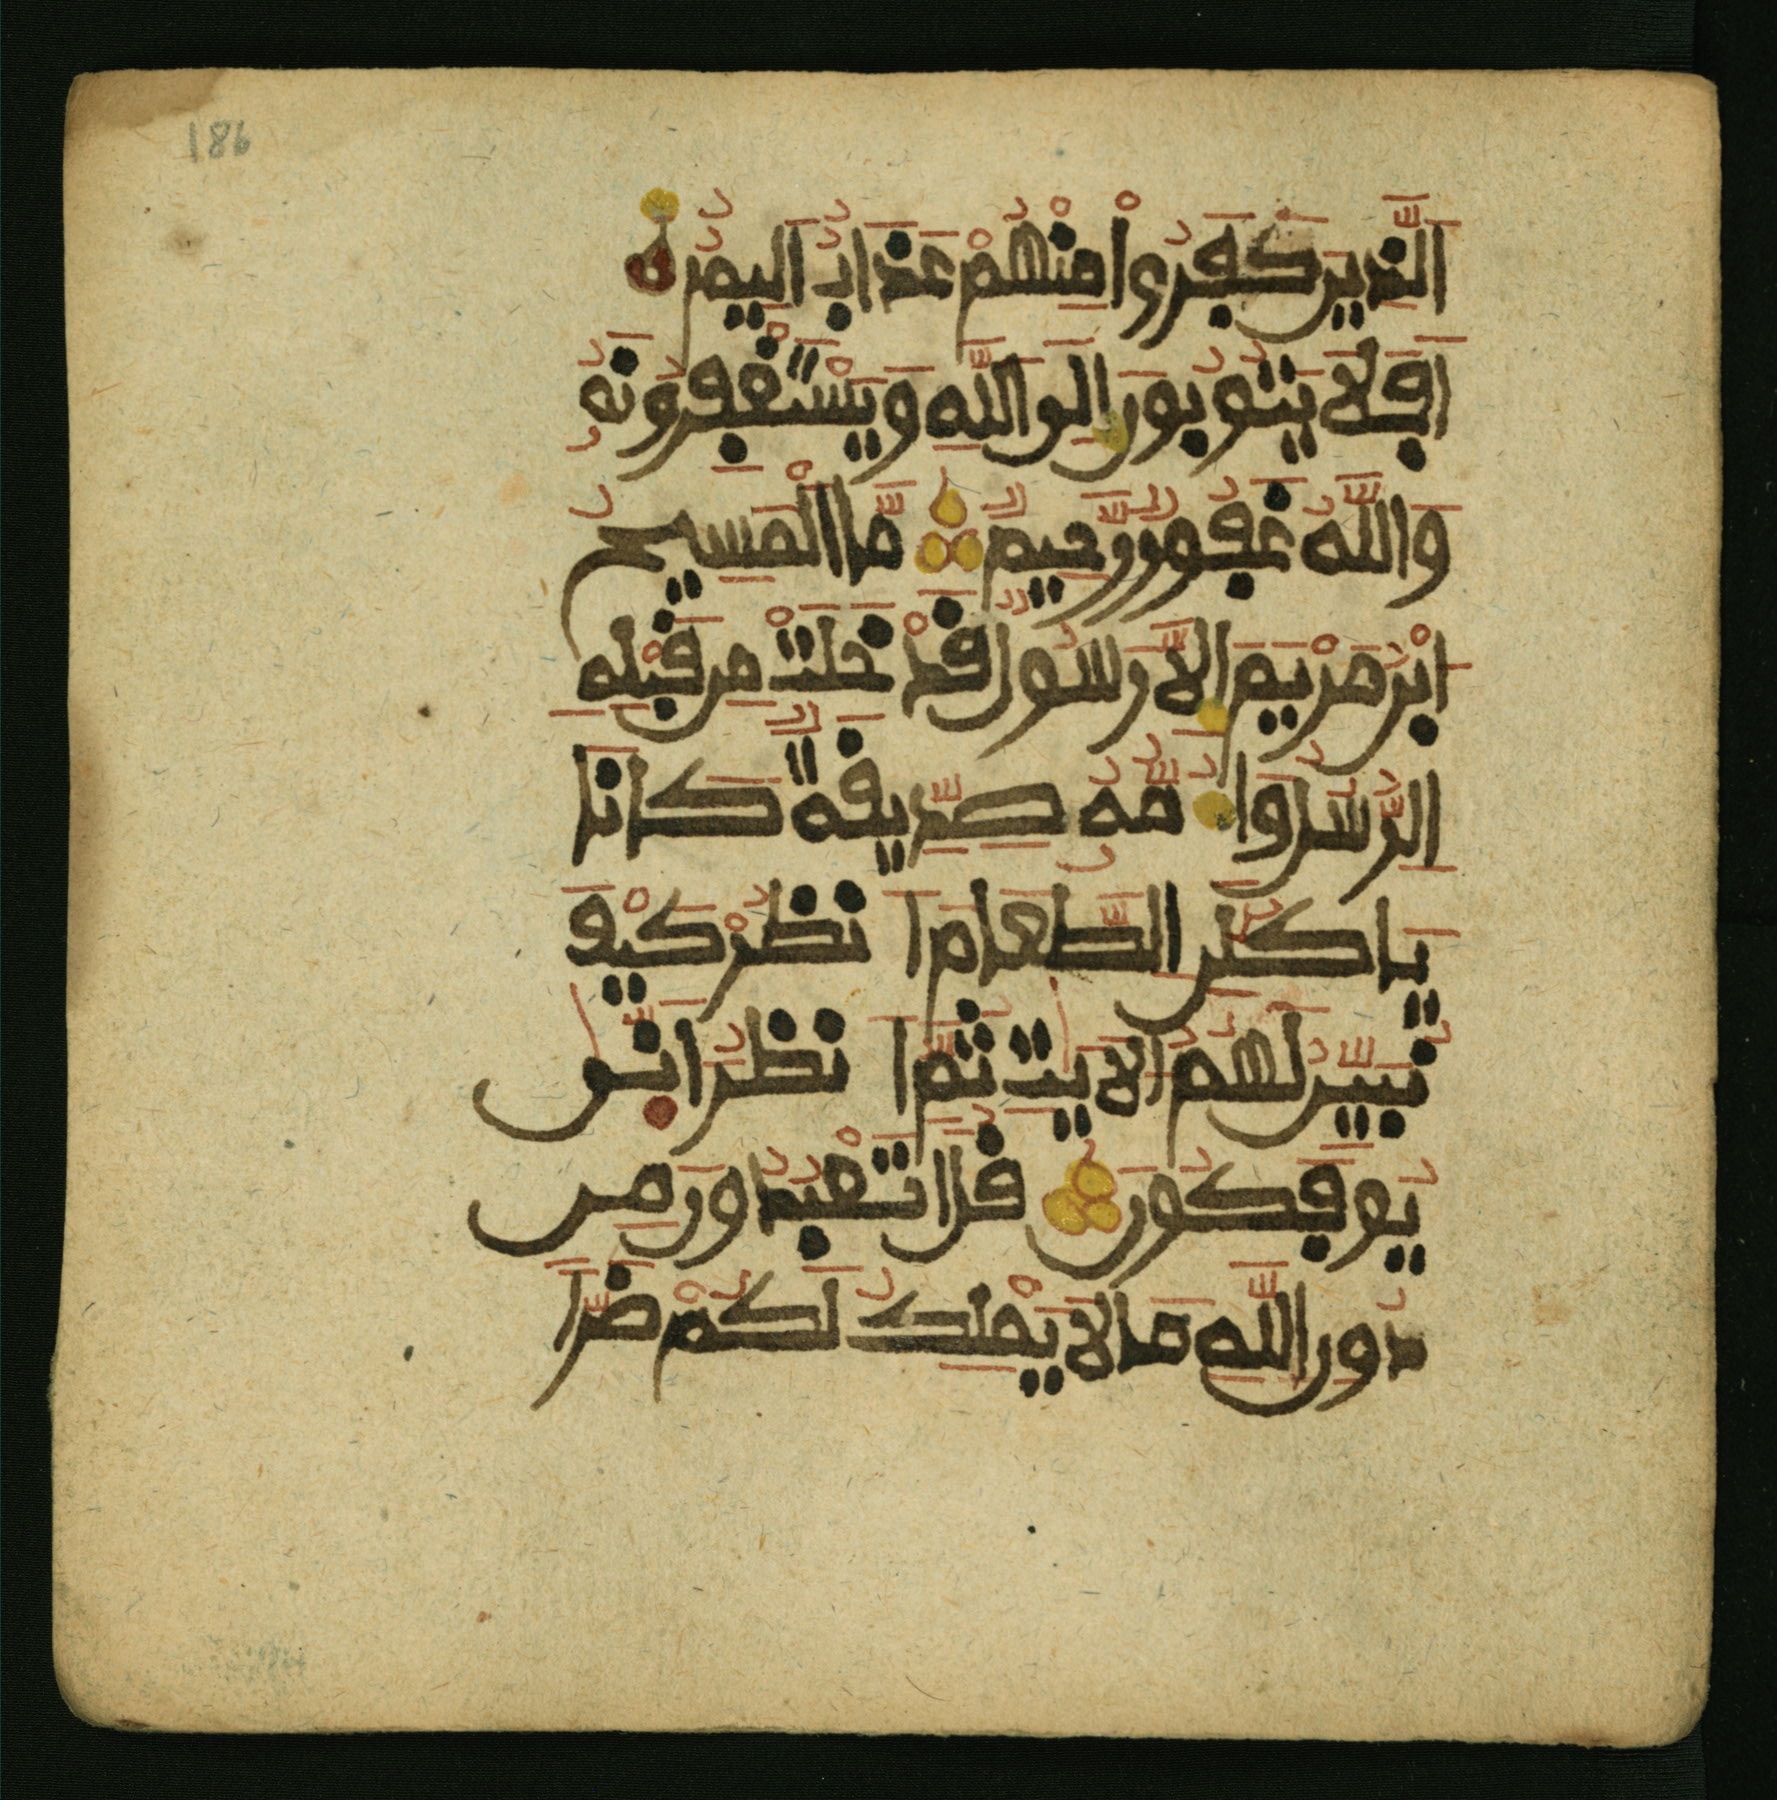 186
الَّذِينَ كَفَرُواْ مِنْهُمْ عَذَابٌ اَلِيمٌ
اَفَلَا يَتُوبُونَ إِلَى اللَّهِ وَيَسْتَغْفِرُونَهُ
وَاللَّهُ غَفُورٌ رَّحِيمٌ مَّا الْمَسِيحُ
ابْنُ مَرْيَمَ إِلَّا رَسُولٌ قَدْ خَلَتْ مِن قَبْلِهِ
الرُّسُلُ وَأُمُّهُ صِدِّيقَةٌ كَانَا
يَاكُلَنِ الطَّعَامَ انظُرْ كَيْفَ
نُبَيِّنُ لَهُمُ الْأَيَتِ ثُمَّ انظُرْ أَنَّى
يُوفَكُونَ قُلْ اَتَعْبُدُونَ مِن
دُونِ اللَّهِ مَا لَا يَمْلِكُ لَكُمْ ضَرّاً